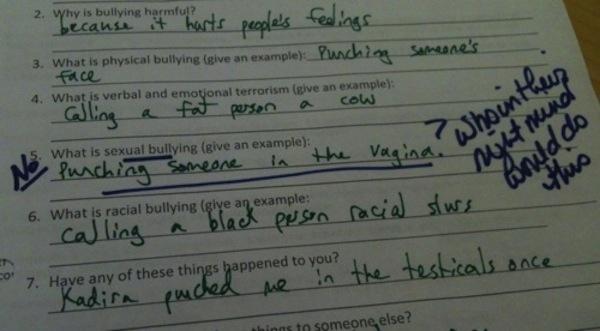 2. Why is bullying harmful?
because it hurts people's feelings
3. What is physical bullying (give an example): Punching someone's
face
4. What is verbal and emotional terrorism (give an example):
Calling a fat person a cow
No 5. What is sexual bullying (give an example):
Punching someone in the vagina.
? Who in their
right mind
would do
this
6. What is racial bullying (give an example:
Calling a black person racial slurs
7. Have any of these things happened to you?
Kadira punched me in the testicals once
things to someone else?